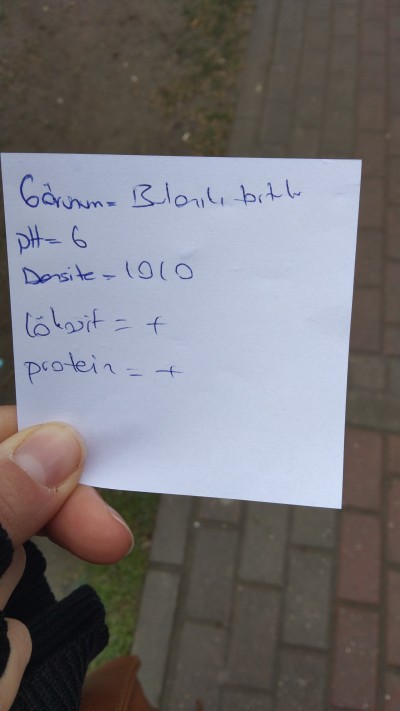 Görünüm = Bulanık, tortulu
pH = 6
Dansite = 1010
lökosit = +
protein = +